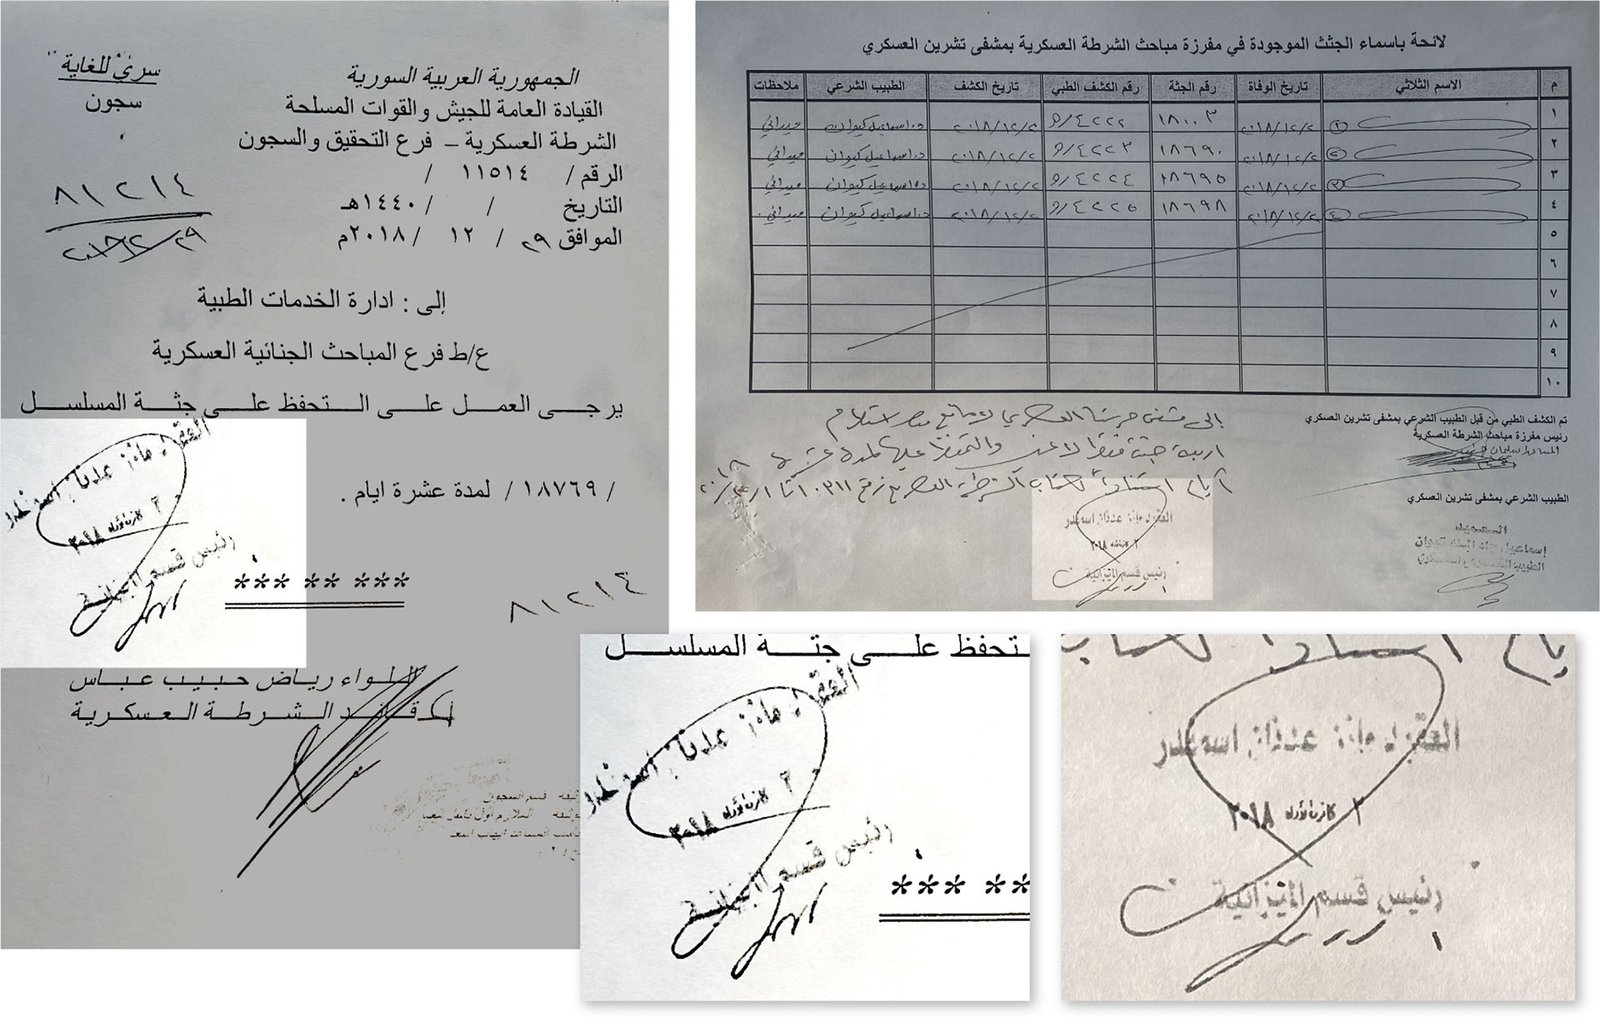 سري للغاية
سجون
الجمهورية العربية السورية
القيادة العامة للجيش والقوات المسلحة
الشرطة العسكرية – فرع التحقيق والسجون
الرقم / ١١٥١٤ /
التاريخ / / ١٤٤٠هـ
الموافق ٢٩ / ١٢ / ٢٠١٨م
٨١٢١٤
إلى : ادارة الخدمات الطبية
ع/ط فرع المباحث الجنائية العسكرية
يرجى العمل على التحفظ على جثة المسلسل
/ ١٨٧٦٩ / لمدة عشرة ايام .
العقيد مازن عدنان اسمندر
٢ كانون أول ٢٠١٨
رئيس قسم الميزانية
*** ** ***
٨١٢١٤
اللواء رياض حبيب عباس
قائد الشرطة العسكرية
لائحة باسماء الجثث الموجودة في مفرزة مباحث الشرطة العسكرية بمشفى تشرين العسكري
م الاسم الثلاثي تاريخ الوفاة رقم الجثة رقم الكشف الطبي تاريخ الكشف الطبيب الشرعي ملاحظات
١ ٢٠١٨/١٢/٢ ١٨٠٠٣ ٤٢٢٢/و ٢٠١٨/١٢/٢ د.اسماعيل كيوان ميداني
٢ ٢٠١٨/١٢/٢ ١٨٦٩٠ ٤٢٢٣/و ٢٠١٨/١٢/٢ د.اسماعيل كيوان ميداني
٣ ٢٠١٨/١٢/٢ ١٨٦٩٥ ٤٢٢٤/و ٢٠١٨/١٢/٢ د.اسماعيل كيوان ميداني
٤ ٢٠١٨/١٢/٢ ١٨٦٩٨ ٤٢٢٥/و ٢٠١٨/١٢/٢ د.اسماعيل كيوان ميداني
٥
٦
٧
٨
٩
١٠
تم الكشف الطبي من قبل الطبيب الشرعي بمشفى تشرين العسكري
رئيس مفرزة مباحث الشرطة العسكرية
الطبيب الشرعي بمشفى تشرين العسكري
العميد
إلى مشفى حرستا العسكري لا مانع من استلام
اربعة جثث فقط لا غير والتحفظ عليها لمدة عشرة
أيام استنادا لكتاب الشرطة العسكرية رقم
العقيد مازن عدنان اسمندر
٢ كانون أول ٢٠١٨
رئيس قسم الميزانية
تحفظ على جثة المسلسل
العقيد مازن عدنان اسمندر
٢ كانون أول ٢٠١٨
رئيس قسم الميزانية
*** **
أيام استنادا لكتاب
العقيد مازن عدنان اسمندر
٢ كانون أول ٢٠١٨
رئيس قسم الميزانية